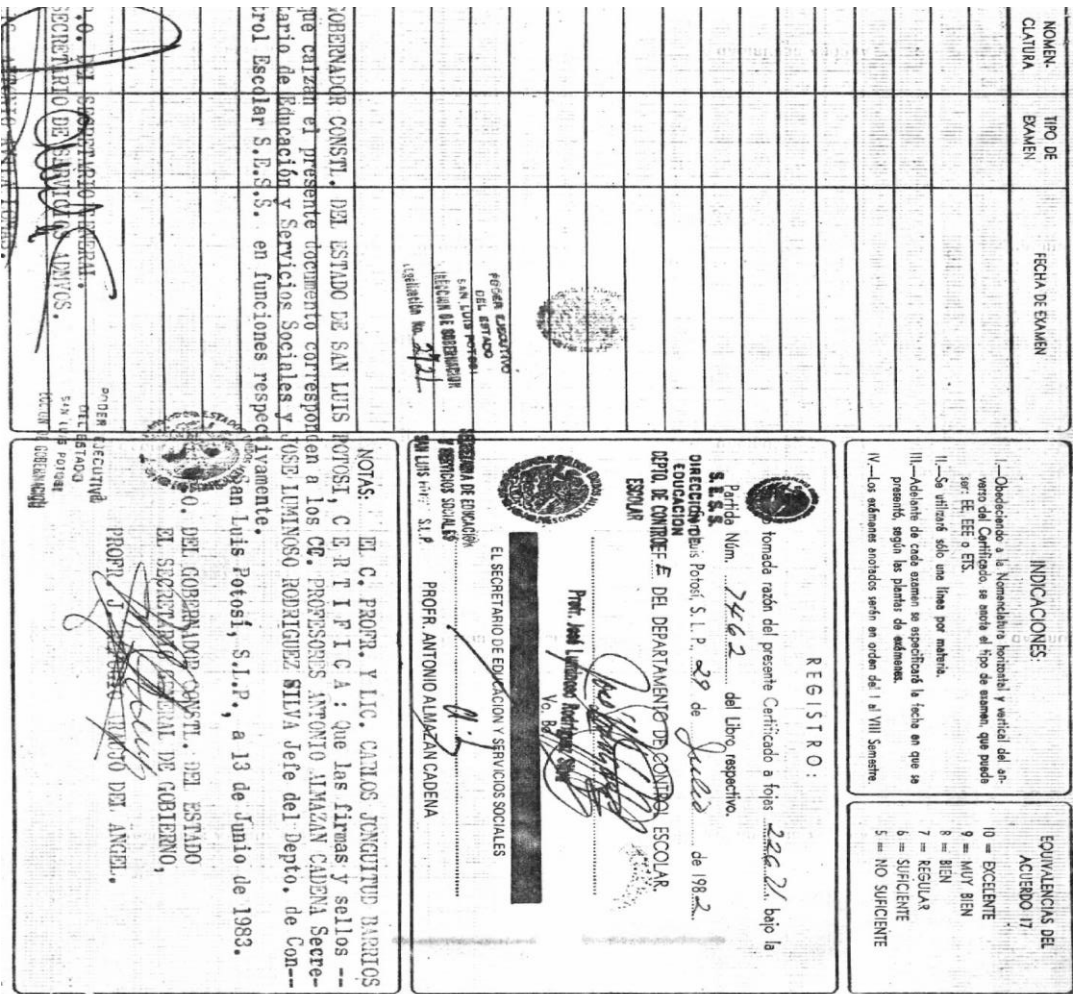 NOMEN-
CLATURA
TIPO DE
EXAMEN
FECHA DE EXAMEN
INDICACIONES:
I.—Obedeciendo a la Nomenclatura horizontal y vertical del an-
verso del Certificado, se anota el tipo de examen, que puede
ser: EE, EEE o ETS.
II.—Se utilizará sólo una línea por materia.
III.—Adelante de cada examen se especificará la fecha en que se
presentó, según las plantas de exámenes.
IV.—Los exámenes anotados serán en orden del I al VIII Semestre.
EQUIVALENCIAS DEL
ACUERDO 17
10 = EXCELENTE
9 = MUY BIEN
8 = BIEN
7 = REGULAR
6 = SUFICIENTE
5 = NO SUFICIENTE
REGISTRO:
tomada razón del presente Certificado a fojas 226 V. bajo la
Partida Núm. 7462 del Libro respectivo.
S.E.S.S.
DIRECCIÓN DE
EDUCACION
DEPTO. DE CONTROL
ESCOLAR
Luis Potosí, S. L. P., 29 de Julio de 1982
EFE DEL DEPARTAMENTO DE CONTROL ESCOLAR.
Profr. José Luminoso Rodríguez Silva
Vo. Bo.
EL SECRETARIO DE EDUCACION Y SERVICIOS SOCIALES
SECRETARIA DE EDUCACION
Y SERVICIOS SOCIALES
SAN LUIS POTOSI S.L.P.
PROFR. ANTONIO ALMAZAN CADENA
PODER EJECUTIVO
DEL ESTADO
SAN LUIS POTOSI
DIRECCION DE GOBERNACION
Legalización No. 2721
NOTAS: EL C. PROFR. Y LIC. CARLOS JONGUITUD BARRIOS
GOBERNADOR CONSTL. DEL ESTADO DE SAN LUIS POTOSI, C E R T I F I C A : Que las firmas y sellos --
que calzan el presente documento corresponden a los CC. PROFESORES ANTONIO ALMAZAN CADENA Secre-
tario de Educación y Servicios Sociales y JOSE LUMINOSO RODRIGUEZ SILVA Jefe del Depto. de Con--
trol Escolar S.E.S.S. en funciones respectivamente.
San Luis Potosí, S.L.P., a 13 de Junio de 1983.
O. DEL GOBERNADOR CONSTL. DEL ESTADO
EL SECRETARIO GENERAL DE GOBIERNO,
PROFR. J. RACJO DEL ANGEL.
.O. DEL SECRETARIO GENERAL.
SECRETARIO DE SERVICIOS ADMVOS.
PODER EJECUTIVO
DEL ESTADO
SAN LUIS POTOSI
GOBERNACION